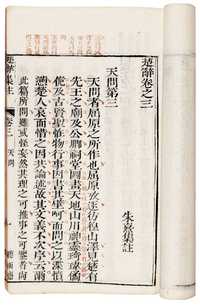 楚辭卷之三
朱熹集註
天問第三
天問者屈原之所作也屈原放逐彷徨山澤見楚有
先王之廟及公卿祠堂圖畫天地山川神靈琦瑋僪
佹及古賢聖怪物行事因書其壁呵而問之以渫憤
懣楚人哀而惜之因共論述故其文義不次序云爾
此篇所問雖或怪妄然其理之可推事之可鑒者尚
楚辭集註 卷三 天問